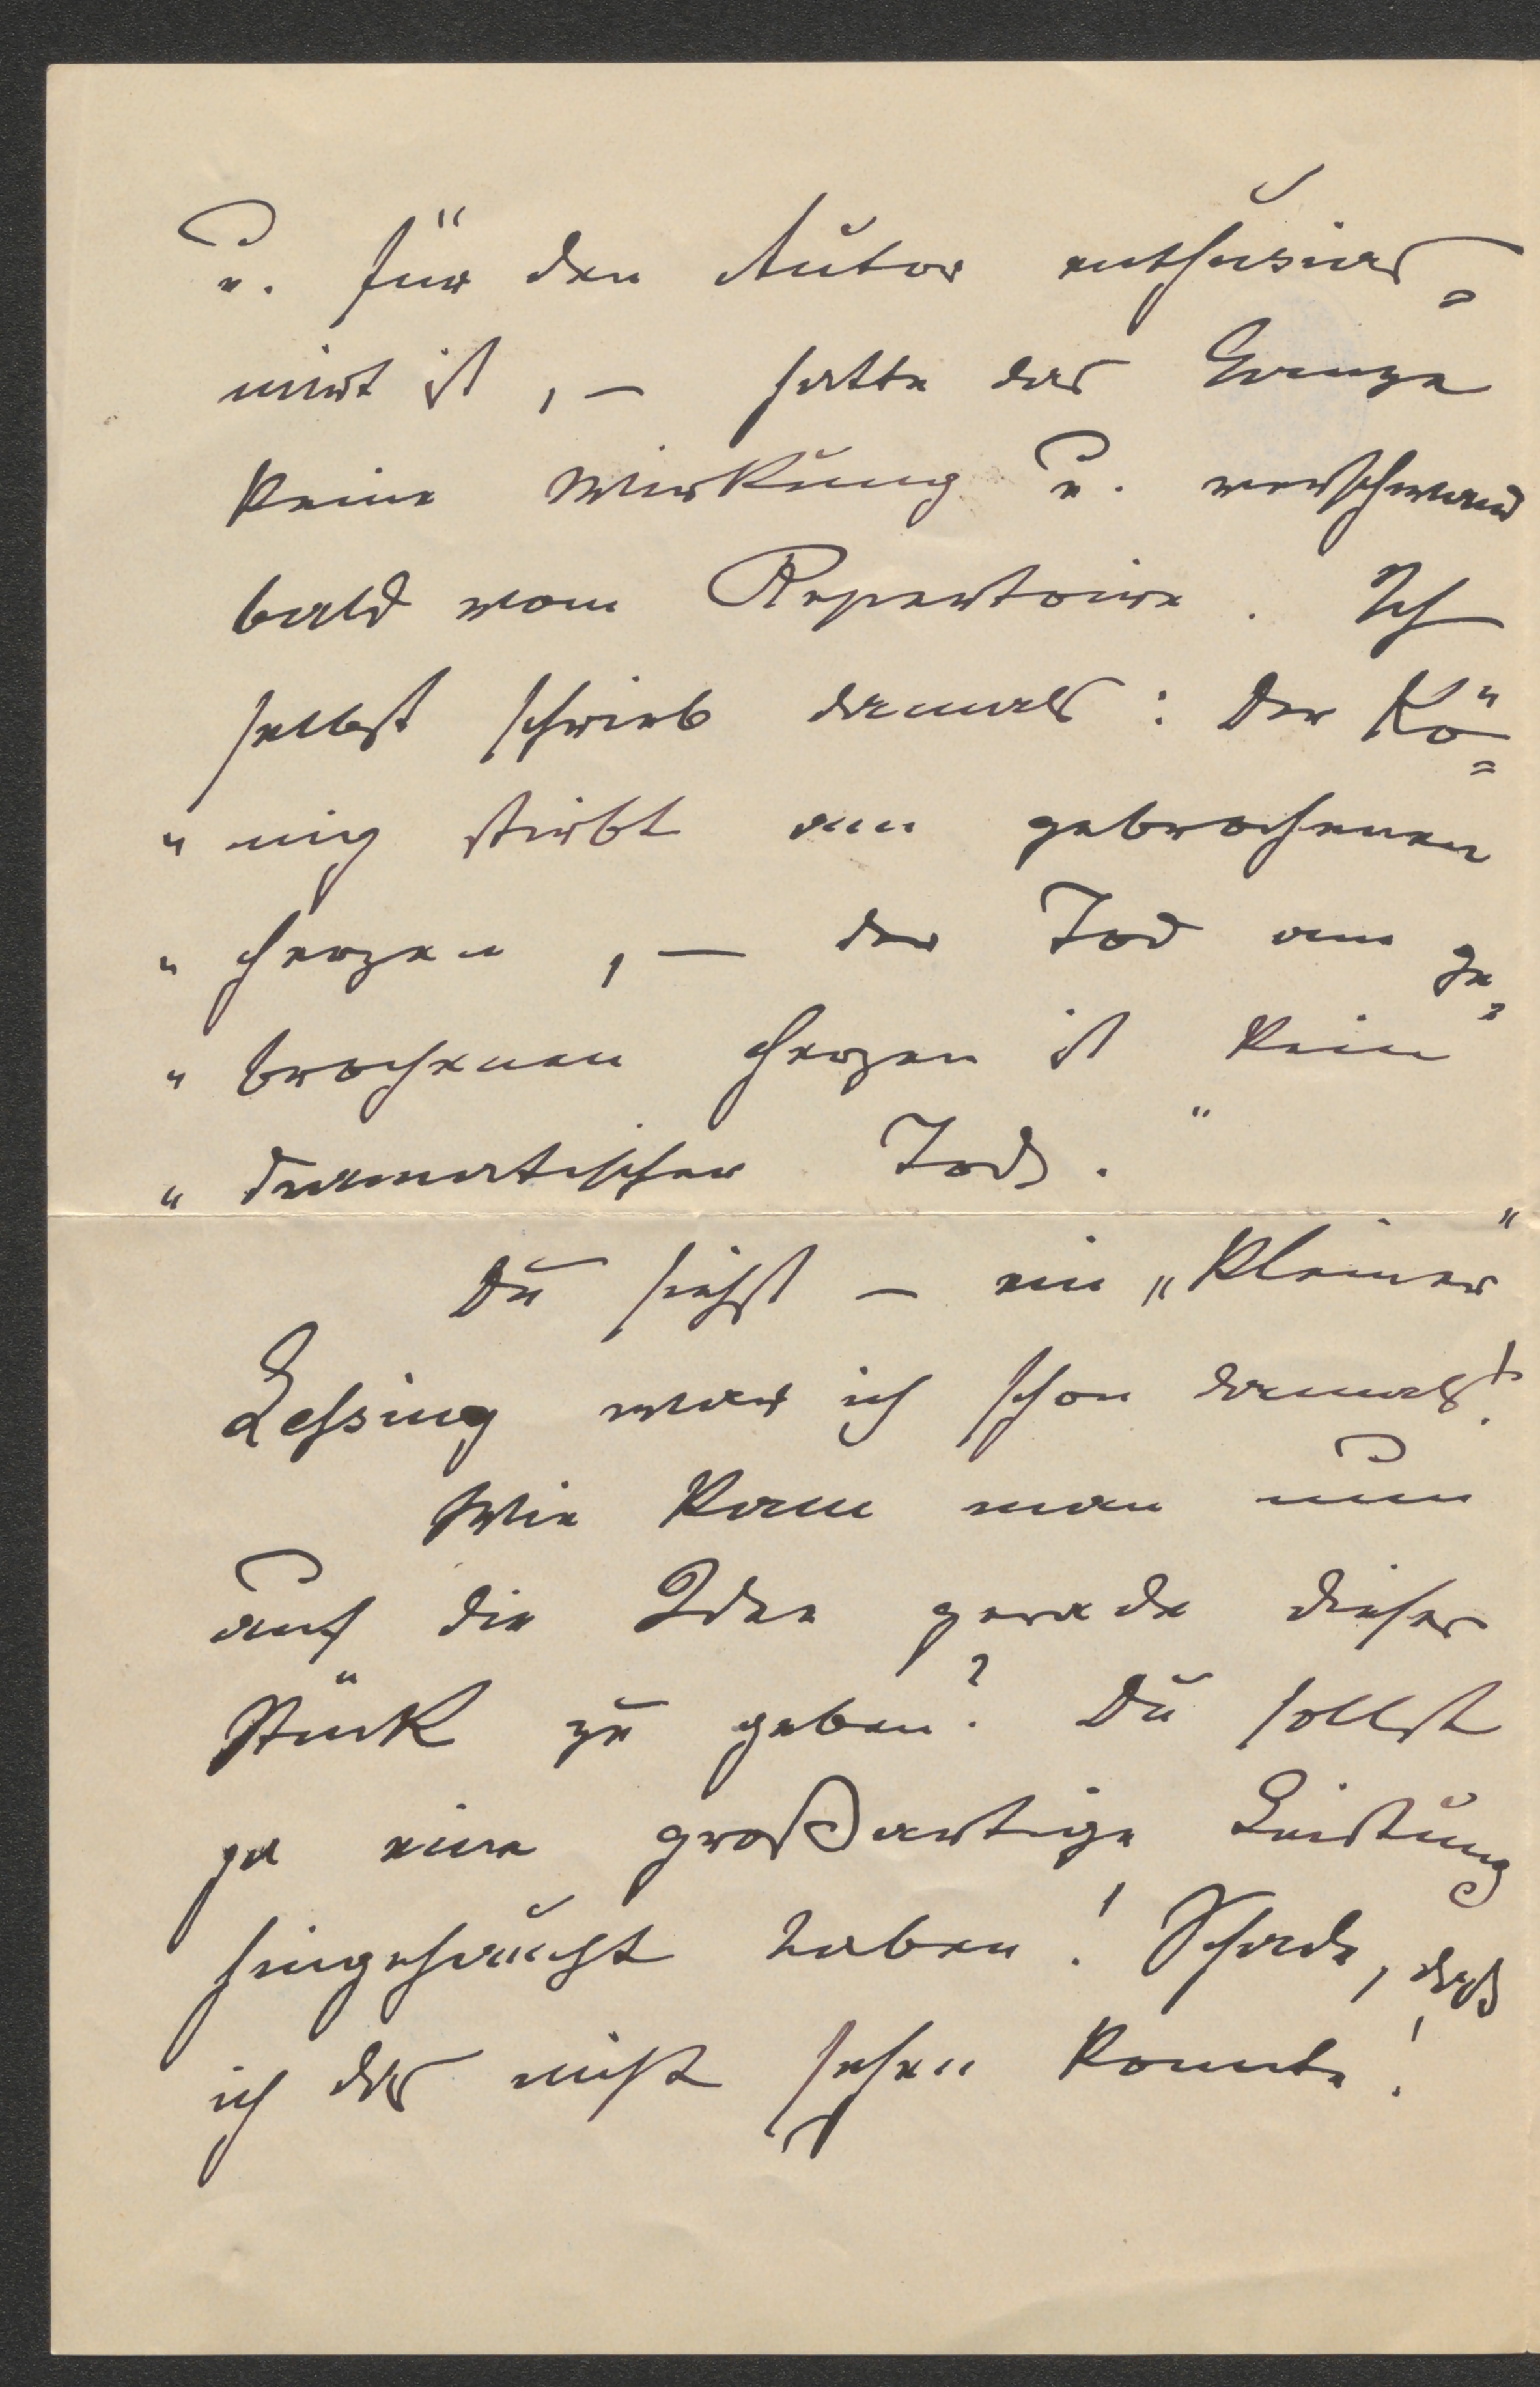 u. für den Autor enthusias=
mirt ist, – hatte das Ganze
keine Wirkung u. verschwand
bald vom Repertoire. Ich
selbst schrieb damals: Der Kö=
„ nig stirbt am gebrochenen
„ Herzen, – der Tod am ge=
„ brochenen Herzen ist kein
„ dramatischer Tod."
Du siehst – ein „kleiner"
Lessing war ich schon damals!
Wie kam man nun
auf die Idee gerade dieses
Stück zu geben? Du sollst
ja eine großartige Leistung
hingehaucht haben! Schade, daß
ich das nicht sehen konnte!